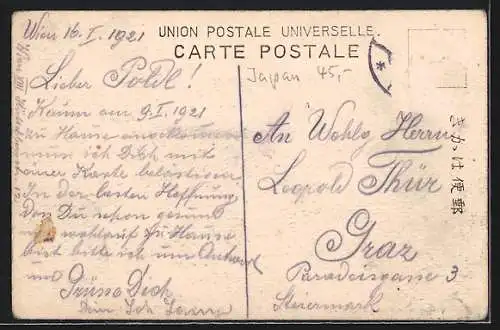 UNION POSTALE UNIVERSELLE.
CARTE POSTALE
Japan 45,-
きかは便郵
Wien 16. I. 1921
Lieber Poldl!
Kaum am 9. I. 1921
zu Hause
muss ich Dich mit
einer Karte belästigen
In der besten Hoffnung
Das Du schon gesund
und wohlauf zu Hause
bist bitte ich um Antwort
und
Grüsse Dich
Dein
An Wohlg. Herrn
Leopold Thür
Graz
Paradeisgasse 3
Steiermark